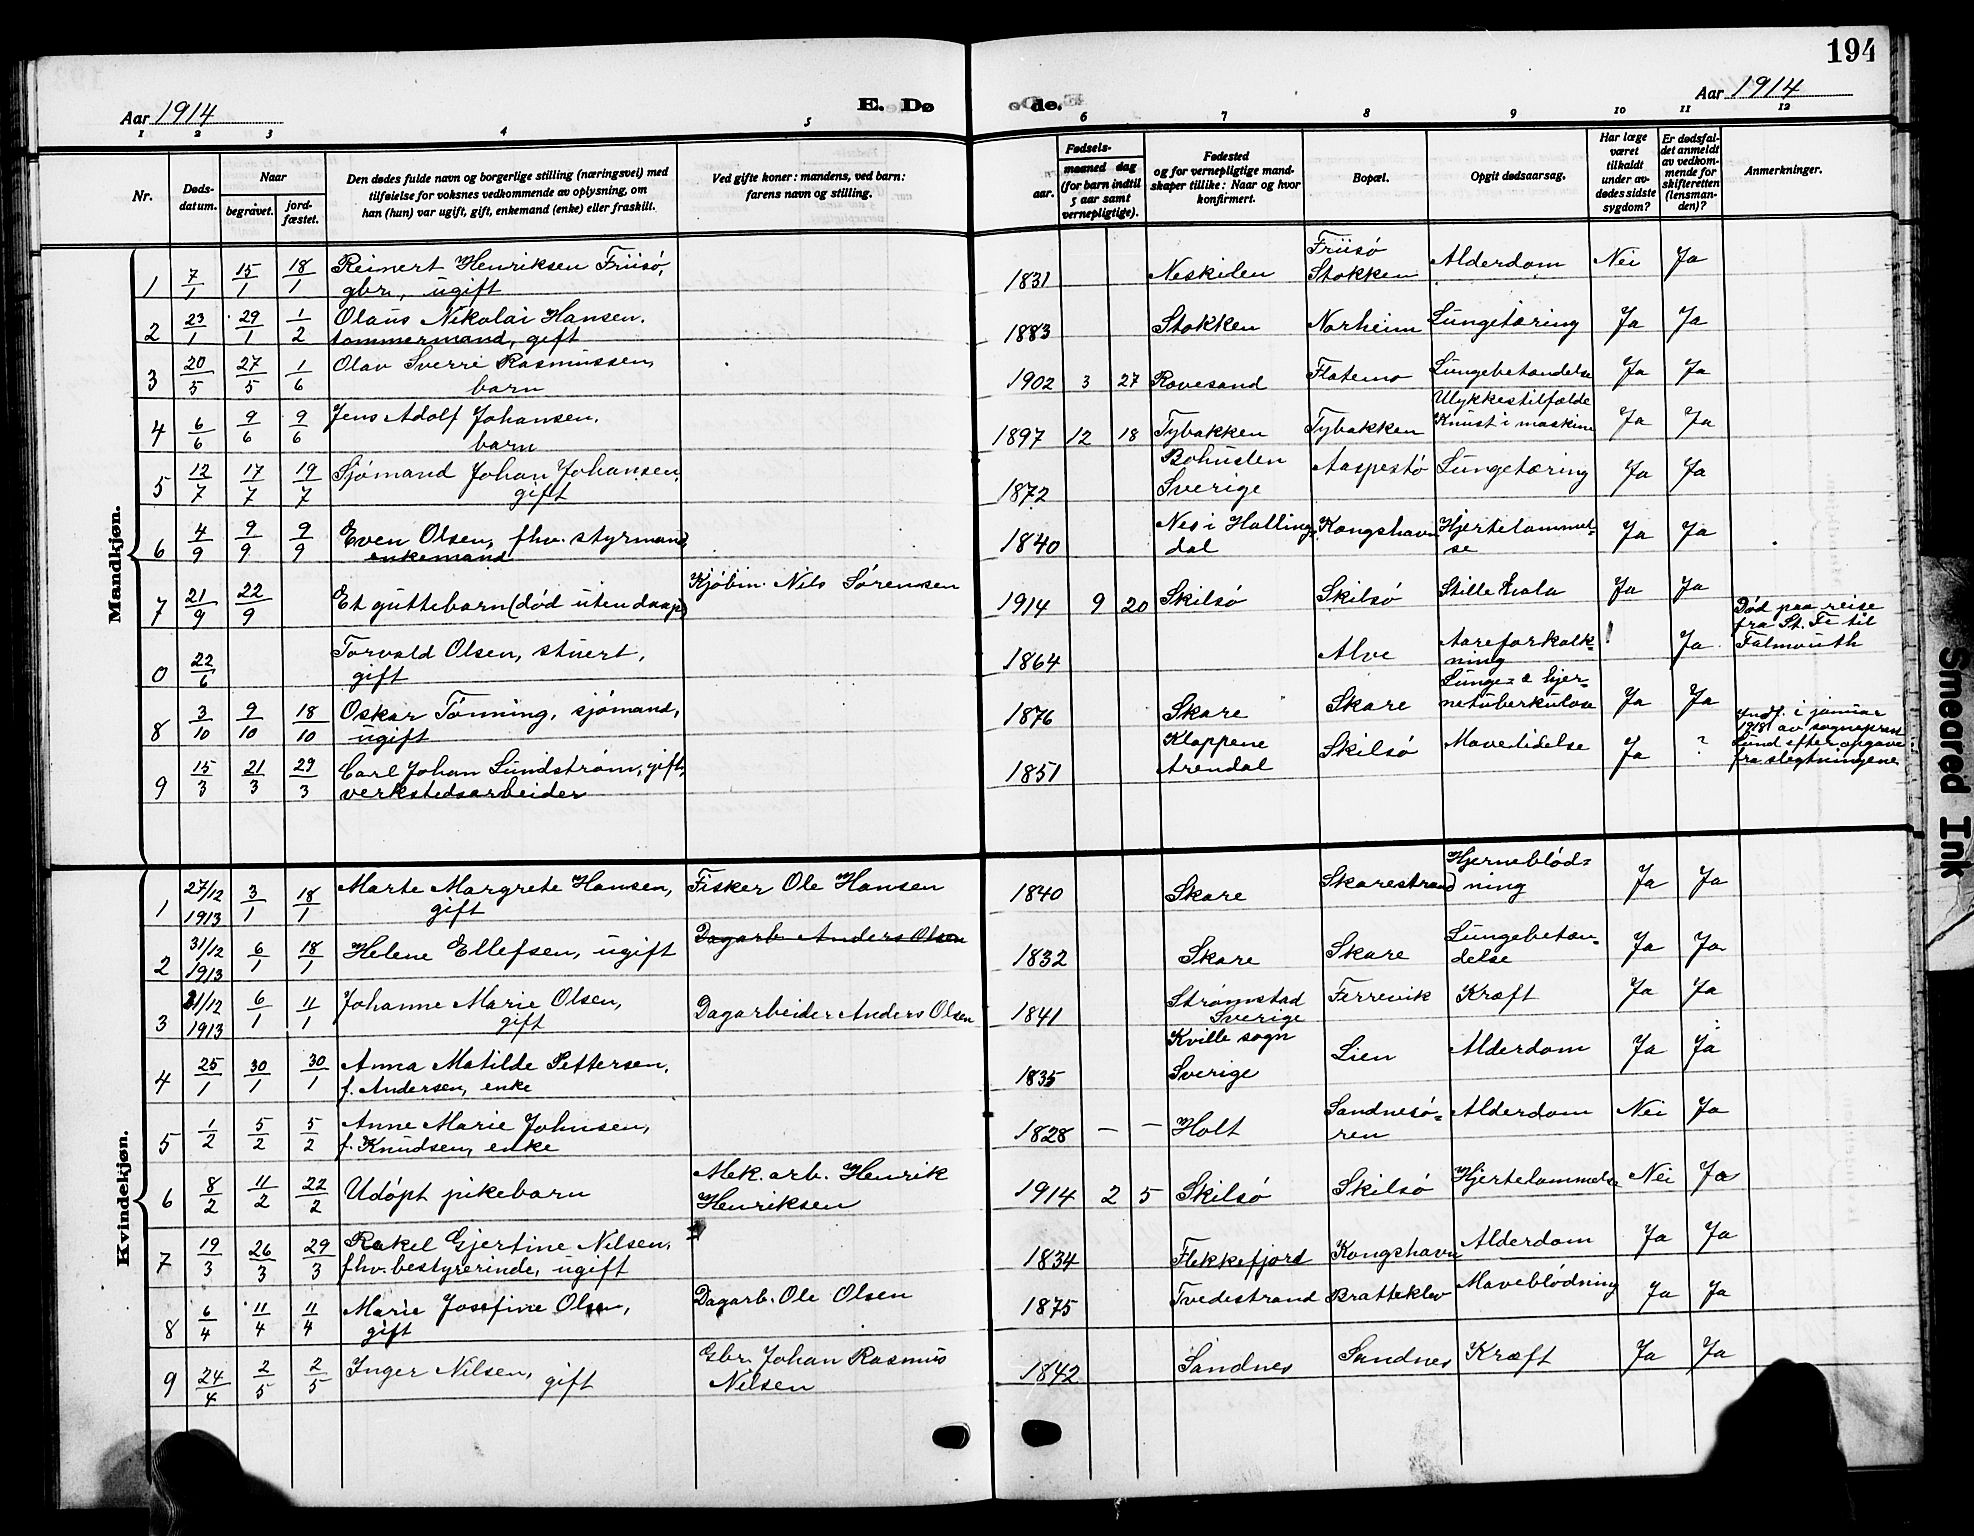 194
Aar 1914
E. Dø
de.
Aar 1914
1 2 3 4 5 6 7 8 9 10 11 12
Nr.
Døds-
datum.
Naar
begravet.
jord-
fæstet.
Den dødes fulde navn og borgerlige stilling (næringsvei) med
tilføielse for voksnes vedkommende av oplysning, om
han (hun) var ugift, gift, enkemand (enke) eller fraskilt.
Ved gifte koner: mandens, ved barn:
farens navn og stilling.
Fødsels-
aar.
maaned dag
(for barn indtil
5 aar samt
vernepligtige).
Fødested
og for vernepligtige mand-
skaper tillike: Naar og hvor
konfirmert.
Bopæl.
Opgit dødsaarsag.
Har læge
været
tilkaldt
under av-
dødes sidste
sygdom?
Er dødsfal-
det anmeldt
av vedkom-
mende for
skifteretten
(lensman-
den)?
Anmerkninger.
Mandkjøn.
1 7/1 15/1 18/1 Reinert Henriksen Friisø, 1831 Neskilen Friisø Alderdom Nei Ja
gbr., ugift Stokken
2 23/1 29/1 1/2 Olaus Nikolai Hansen. 1883 Stokken Norheim Lungetæring Ja Ja
tømmermand, gift
3 20/5 27/5 1/6 Olav Sverre Rasmussen, 1902 3 27 Rovesand Flatemo Lungebetændelse Ja Ja
barn
4 6/6 9/6 9/6 Jens Adolf Johansen. 1897 12 18 Tybakken Tybakken Ulykkestilfælde Ja Ja
barn Knust i maskine
5 12/7 17/7 19/7 Sjømand Johan Johansen, 1872 Bohuslen Aaspestø Lungetæring Ja Ja
gift Sverige
6 4/9 9/9 9/9 Even Olsen, fhv. styrmand, 1840 Nes i Halling- Kongshavn Hjertelammel- Ja Ja
enkemand dal se
7 21/9 22/9 Et guttebarn (død uten daap) Kjøbm. Nils Sørensen 1914 9 20 Skilsø Skilsø Stille hala Ja Ja
0 22/6 Torvald Olsen, stuert, 1864 Alve Aareforkalk- ! Ja Død paa reise
gift ning fra St. Fe til
Falmouth
8 3/10 9/10 18/10 Oskar Tønning, sjømand, 1876 Skare Skare Lunge- & hjer- Ja Ja
ugift netuberkulose
9 15/3 21/3 29/3 Carl Johan Lundstrøm, gift, 1851 Kloppene Skilsø Mavelidelse Ja ? Indf. i januar
verkstedsarbeider Arendal 1918 av sogneprest
Lund efter opgave
fra slegtningene
Kvindekjøn.
1 27/12 1913 3/1 18/1 Marte Margrete Hansen, Fisker Ole Hansen 1840 Skare Skarestrand Hjerneblød- Ja Ja
gift ning
2 31/12 1913 6/1 18/1 Helene Ellefsen, ugift Dagarb. Anders Olsen 1832 Skare Skare Lungebetæn- Ja Ja
delse
3 31/12 1913 6/1 11/1 Johanne Marie Olsen, Dagarbeider Anders Olsen 1841 Strømstad Færrevik Kræft Ja Ja
gift Sverige
4 25/1 30/1 30/1 Anna Matilde Pettersen, 1835 Kville sogn Lien Alderdom Ja Ja
f. Andersen, enke Sverige
5 1/2 5/2 5/2 Anne Marie Johnsen, 1828 — — Holt Sandnesø- Alderdom Nei Ja
f. Knudsen, enke ren
6 8/2 11/2 22/2 Udøpt pikebarn Mek. arb. Henrik 1914 2 5 Skilsø Skilsø Hjertelammelse Nei Ja
Henriksen
7 19/3 26/3 29/3 Rakel Gjertine Nilsen, 1834 Flekkefjord Kongshavn Alderdom Ja Ja
fhv. bestyrerinde, ugift
8 6/4 11/4 11/4 Marie Josefine Olsen, Dagarb. Ole Olsen 1875 Tvedestrand Bratteklev Maveblødning Ja Ja
gift
9 24/4 2/5 2/5 Inger Nilsen, gift Gbr. Johan Rasmus 1842 Sandnes Sandnes Kræft Ja Ja
Nilsen
Smeared Ink